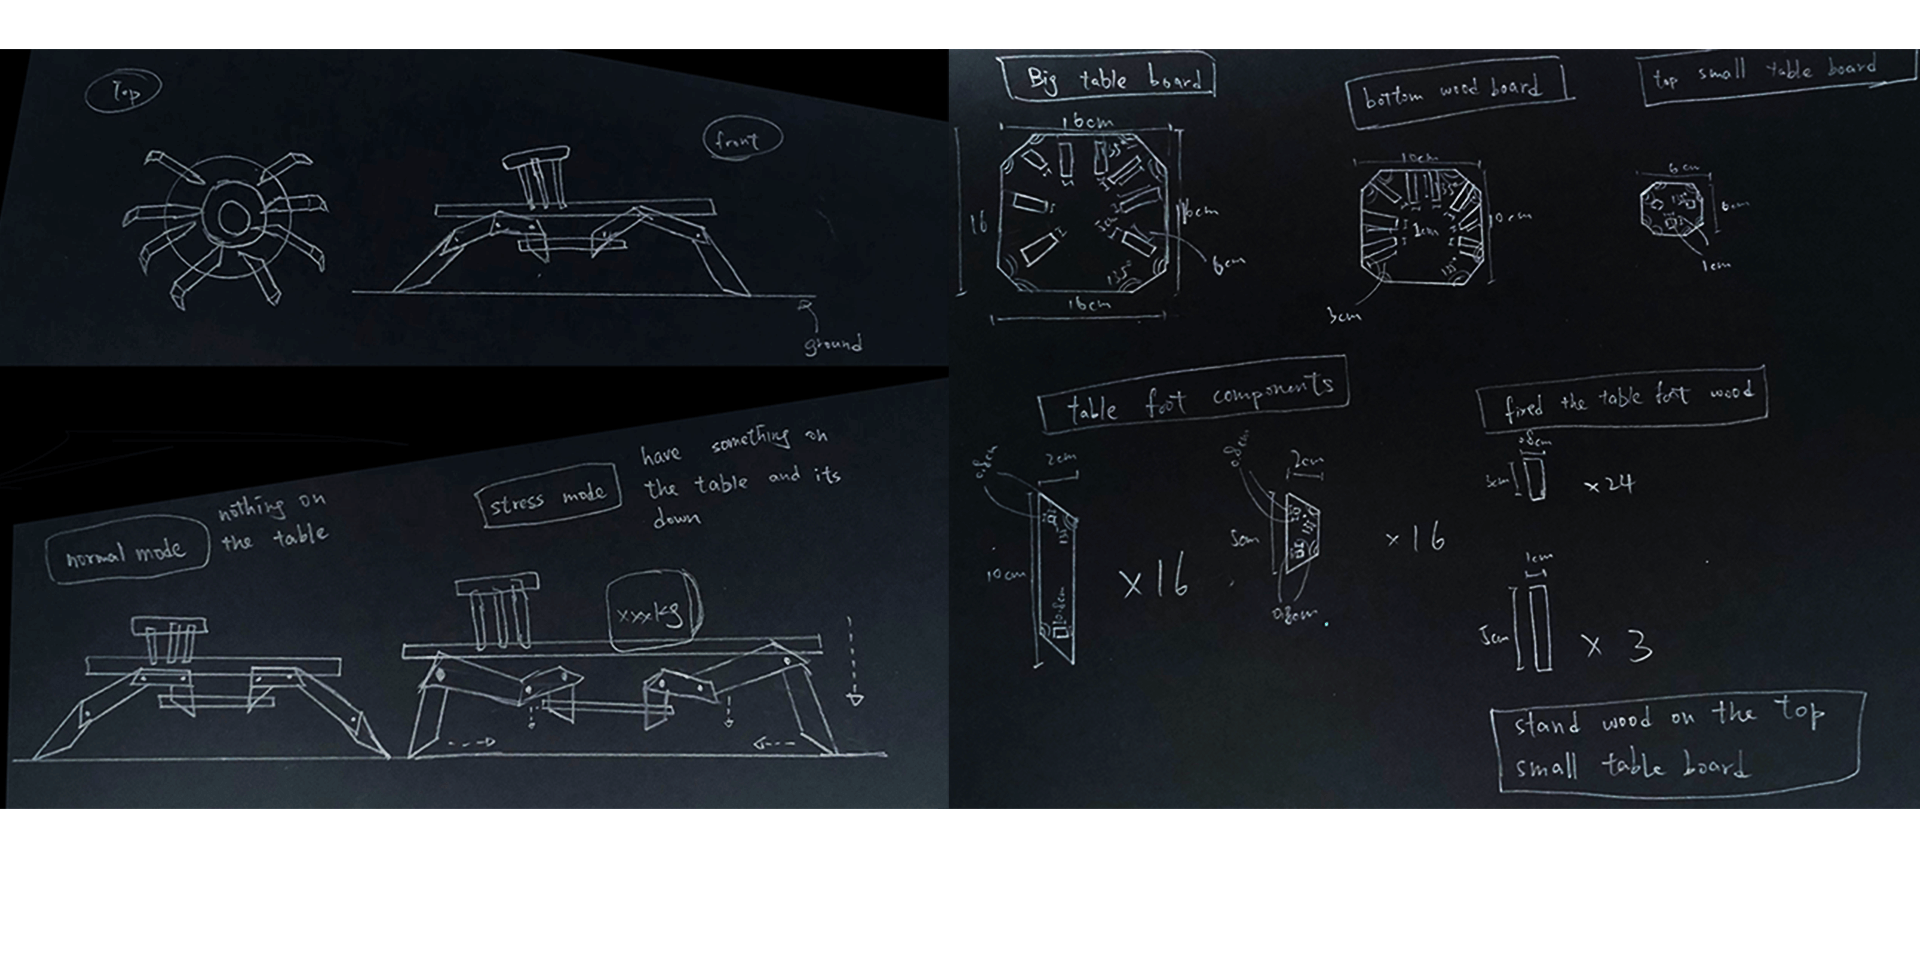 Top
front
ground
normal mode
nothing on
the table
stress mode
have something on
the table and its
down
xxxkg
Big table board
16cm
16
16cm
6cm
135°
135°
16cm
bottom wood board
10cm
135°
10cm
1cm
135°
3cm
top small table board
6cm
135°
6cm
1cm
table foot components
0.8cm
2cm
135°
10cm
0.8cm
x16
0.8cm
2cm
135°
5cm
0.8cm.
x16
fixed the table foot wood
0.8cm
3cm
x24
1cm
5cm
x 3
stand wood on the top
small table board